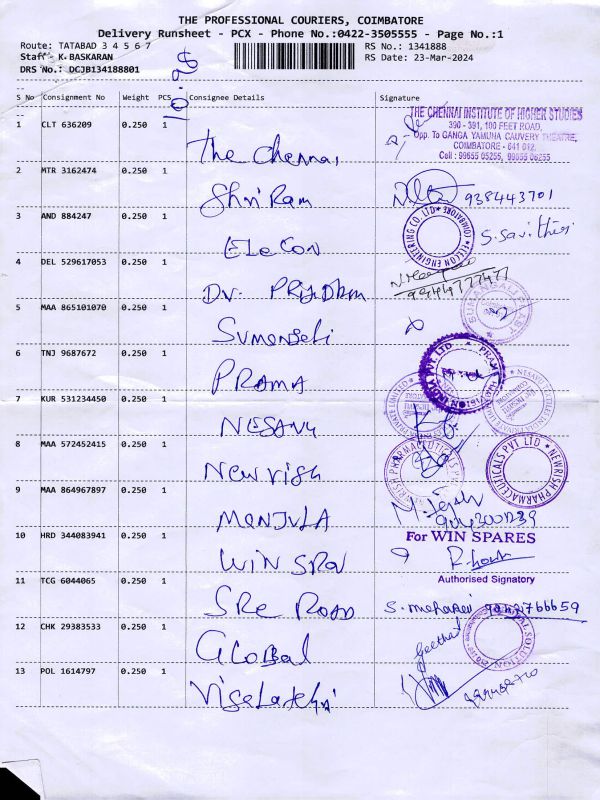 THE PROFESSIONAL COURIERS, COIMBATORE
Delivery Runsheet - PCX - Phone No.:0422-3505555 - Page No.:1
Route: TATABAD 3 4 5 6 7
RS No.: 1341888
Staff - K.BASKARAN
RS Date: 23-Mar-2024
DRS No.: DCJB134188801
S No Consignment No Weight PCS Consignee Details Signature
1 CLT 636209 0.250 1 The Chennai
THE CHENNAI INSTITUTE OF HIGHER STUDIES
390 - 391, 100 FEET ROAD,
Opp. To GANGA YAMUNA CAUVERY THEATRE,
COIMBATORE - 641 012.
Cell : 99655 05255, 99055 06255
2 MTR 3162474 0.250 1 Shri Ram 938443701
3 AND 884247 0.250 1 ELeCON S. Savithiri
ELECON ENGINEERING CO. LTD COIMBATORE
4 DEL 529617053 0.250 1 Dr. PRIYADhm
5 MAA 865101070 0.250 1
6 TNJ 9687672 0.250 1 PRAMA
7 KUR 531234450 0.250 1 NESAVU
8 MAA 572452415 0.250 1 Newrish
NEWRISH PHARMACEUTICALS PVT LTD
9 MAA 864967897 0.250 1 MANJULA
10 HRD 344083941 0.250 1 WIN
For WIN SPARES
Authorised Signatory
11 TCG 6044065 0.250 1 SRe
12 CHK 29383533 0.250 1 GLOBal Geetha
13 POL 1614797 0.250 1